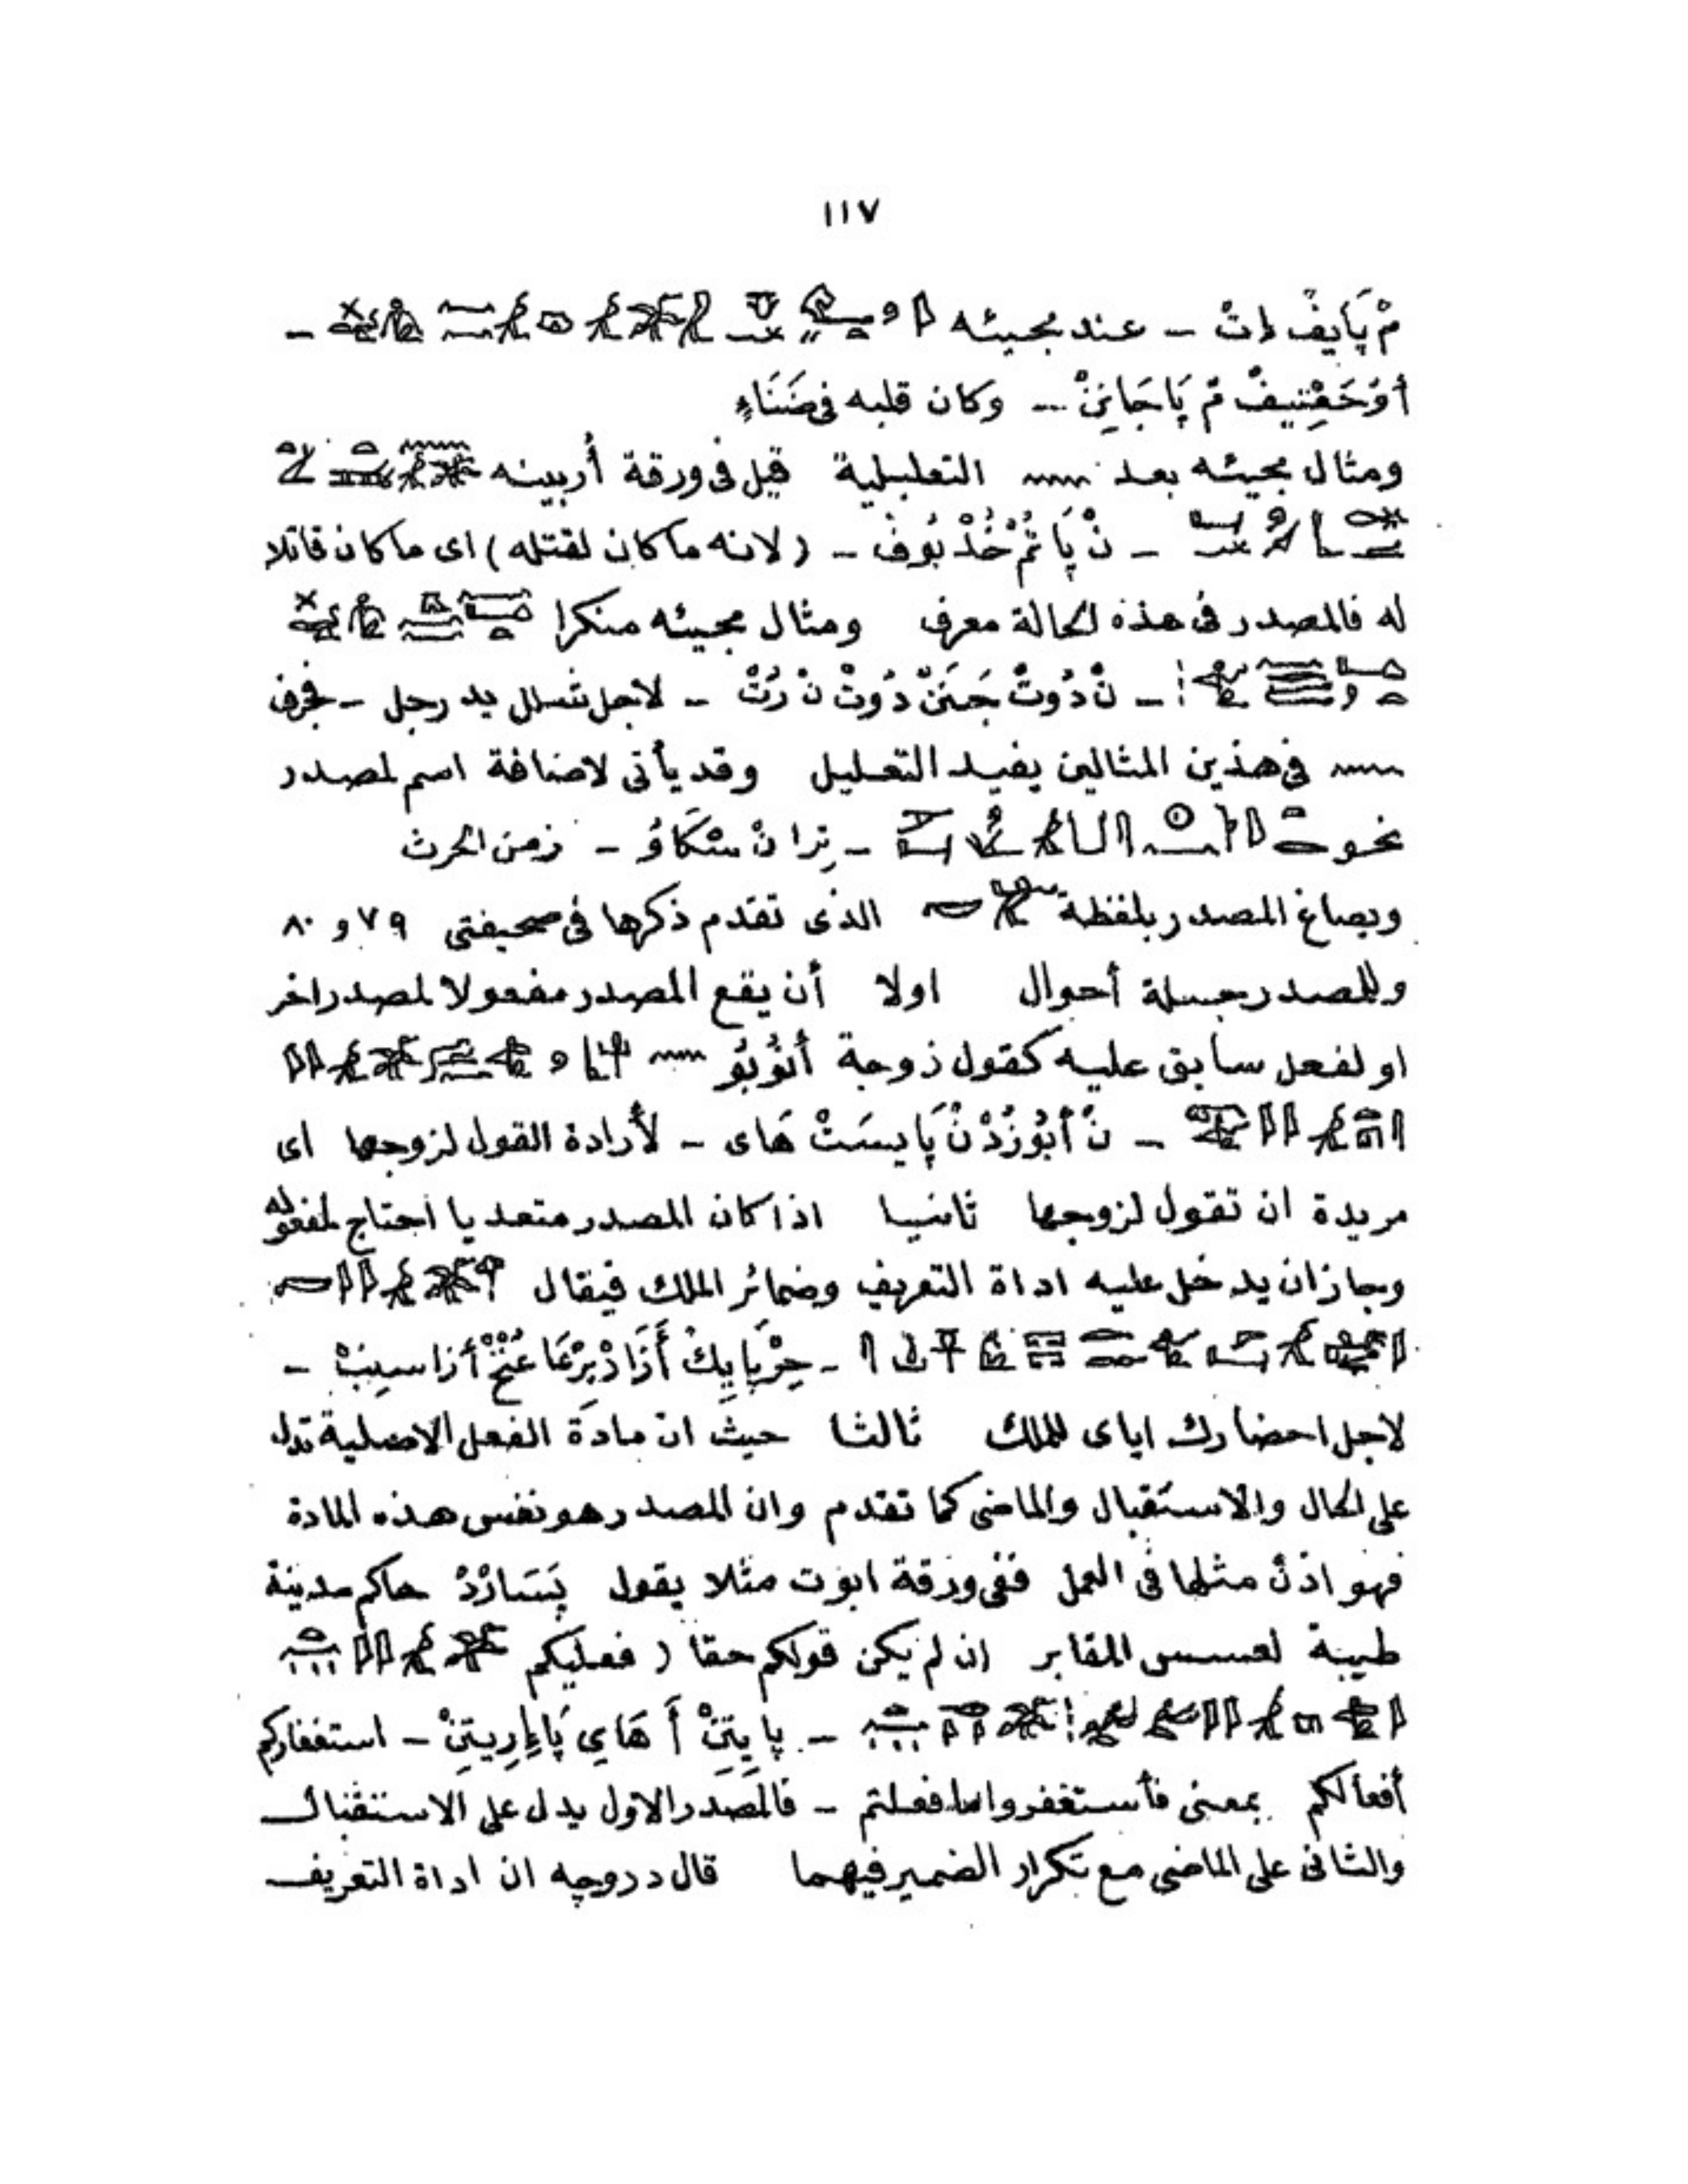 ١١٧
مْ پَايفْ إتْ - عند مجيئه -
أوُحَعْتيفْ مْ پَا جَاينْ - وكان قلبه فى ضَنَاءٍ
ومثال مجيئه بعد التعليلية قيل فى ورقة أربينه
- نْ پَا تُمْ خُدْ بُوفْ - (لانه ماكان لقتله) اى ماكان قاتلا
له فالمصدر فى هذه الحالة معرف ومثال مجيئه منكرا
- نْ دُوتْ جَنَنْ دُوتْ نْ رُتْ - لاجل شلل يد رجل - فحرف
فى هذين المثالين يفيد التعليل وقد يأتى لاضافة اسم لمصدر
نحو - تِرا نْ سْكَاوُ - زمن الحرث
ويصاغ المصدر بلفظة الذى تقدم ذكرها فى صحيفتى ٧٩ و ٨٠
وللمصدر جملة أحوال اولا أن يقع المصدر مفعولا لمصدر اخر
او لفعل سابق عليه كقول زوجة أنُوُپُو
- نْ أبُوزُدْ نْ پَايسَتْ هَاى - لأرادة القول لزوجها اى
مريدة ان تقول لزوجها ثانيا اذا كان المصدر متعديا احتاج لمفعوله
وجاز ان يدخل عليه اداة التعريف وضمائر الملك فيقال
- حِرْ پَايِكْ أزَادْ پِرْعَا عُنْخْ أزَا سِينبْ -
لاجل احضارك اياى للملك ثالثا حيث ان مادة الفعل الاصلية تدل
على الحال والاستقبال والماضى كما تقدم وان المصدر هو نفس هذه المادة
فهو اذن مثلها فى العمل ففى ورقة ابوت مثلا يقول پَسَارْدْ حاكم مدينة
طيبة لعسس المقابر ان لم يكن قولكم حقا (فعليكم
- پَايتِنْ أ هَاي پَا إريتِنْ - استغفاركم
أفعالكم بمعنى فأستغفروا لما فعلتم - فالمصدر الاول يدل على الاستقبال
والثانى على الماضى مع تكرار الضمير فيهما قال دروچه ان اداة التعريف